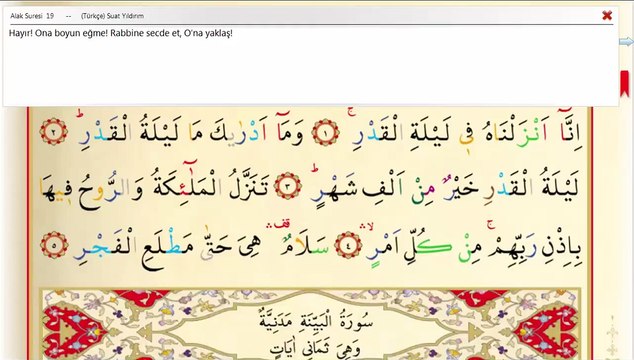 Alak Suresi 19 -- (Türkçe) Suat Yıldırım
Hayır! Ona boyun eğme! Rabbine secde et, O'na yaklaş!
اِنَّٓا اَنْزَلْنَاهُ ف۪ي لَيْلَةِ الْقَدْرِۚ ﴿١﴾ وَمَٓا اَدْرٰيكَ مَا لَيْلَةُ الْقَدْرِۜ ﴿٢﴾
لَيْلَةُ الْقَدْرِ خَيْرٌ مِنْ اَلْفِ شَهْرٍۜ ﴿٣﴾ تَنَزَّلُ الْمَلٰٓئِكَةُ وَالرُّوحُ ف۪يهَا
بِاِذْنِ رَبِّهِمْۚ مِنْ كُلِّ اَمْرٍۙ ﴿٤﴾ سَلَامٌ۠ هِيَ حَتّٰى مَطْلَعِ الْفَجْرِ ﴿٥﴾
سُورَةُ الْبَيِّنَةِ مَدَنِيَّةٌ
وَهِيَ ثَمَانِي اٰيَاتٍ